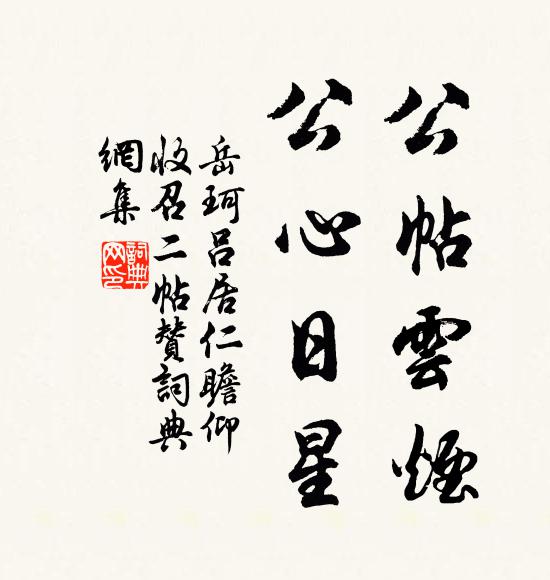 公帖雲煙
公心日星
岳珂呂居仁瞻仰
收召二帖贊詞典
網集
詞典網印